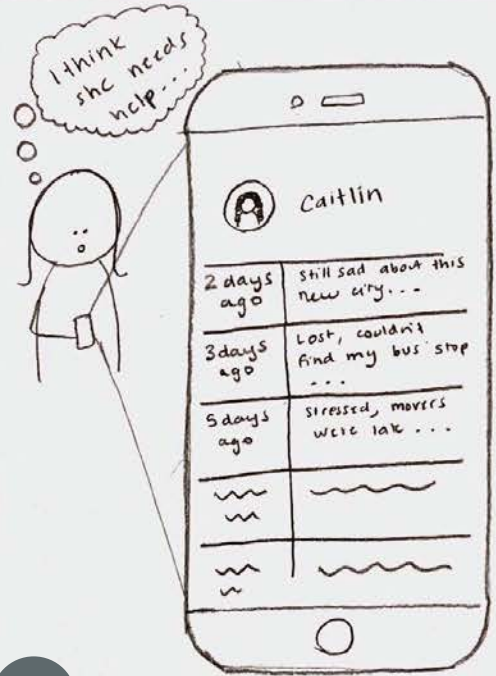 I think
she needs
help...
Caitlin
2 days
ago
still sad about this
new city...
3 days
ago
Lost, couldn't
find my bus stop
...
5 days
ago
stressed, movers
were late ...